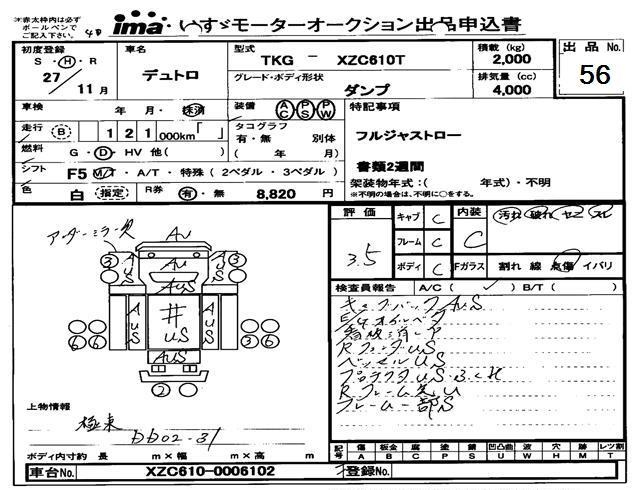 ※赤太枠内は必ず
ボールペンで
ご記入下さい。
40
ima いすゞモーターオークション出品申込書
初度登録
S・H・R
27/11月
車名
デュトロ
型式
TKG － XZC610T
グレード・ボディ形状
ダンプ
積載 (kg)
2,000
排気量 (cc)
4,000
出品No.
56
車検
年・月・抹消
装備
AC PS PW
特記事項
走行
B
121000km「 」
タコグラフ
有・無 別体
( 年 月)
フルジャストロー
書類2週間
燃料
G・D・HV 他( )
シフト
F5 M/T・A/T・特殊(2ペダル・3ペダル)
架装物年式:( 年式)・不明
※不明の場合は、不明に○をする。
色
白 (指定)
R券
有・無 8,820 円
評価
3.5
キャブ C
フレーム C
ボディ C
内装
C
汚れ 破れ セミ スレ
Fガラス
割れ 線 点傷 イバリ
検査員報告 A/C( ) B/T( )
キャブバック AuS
Rフェンダ uS
ベッセル uS
R フレーム先 u
フレーム一部S
アンダーミラー欠
Au
3
AuS
AuS
3
AuS
AuS
AuS
# uS
AuS
AuS
6 6
3 6
2
上物情報
極東
DD02-31
ボディ内寸約 長 m×幅 m×高 m
記号
傷 板金 腐 塗 錆 凹凸曲 波 穴 跡 レツ割
A B C P S U W H M T
車台No.
XZC610-0006102
登録No.